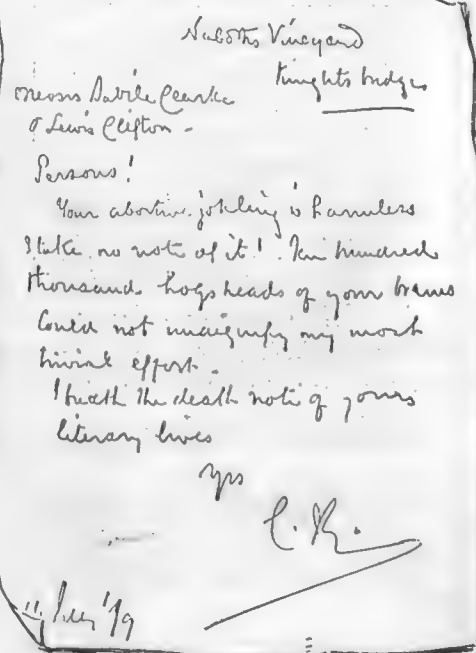 Naboths Vineyard
Knightsbridge
Messrs Savile Clarke
& Lewis Clifton -
Persons!
Your abortive jokeling is harmless
I take no note of it! Ten hundred
thousand hogsheads of your brains
Could not undignify my most
trivial effort.
I breath the death note of yours
literary lives
Yrs
C. R.
11 /79